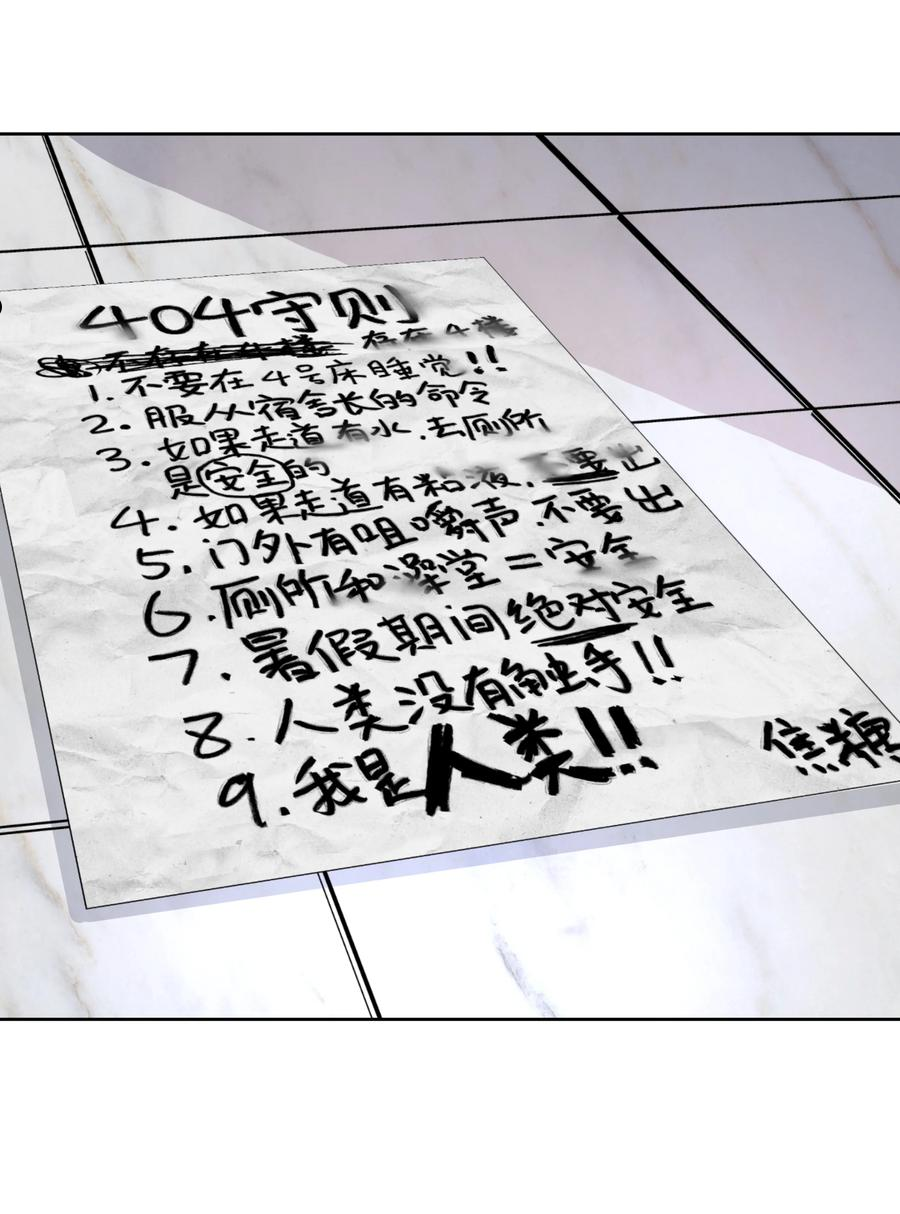 404守则
不存在4楼 存在4楼
1.不要在4号床睡觉!!
2.服从宿舍长的命令
3.如果走道有水.去厕所
是安全的
4.如果走道有粘液.不要出
5.门外有咀嚼声.不要出
6.厕所和澡堂=安全
7.暑假期间绝对安全
8.人类没有触手!!
9.我是人类!!
焦糖